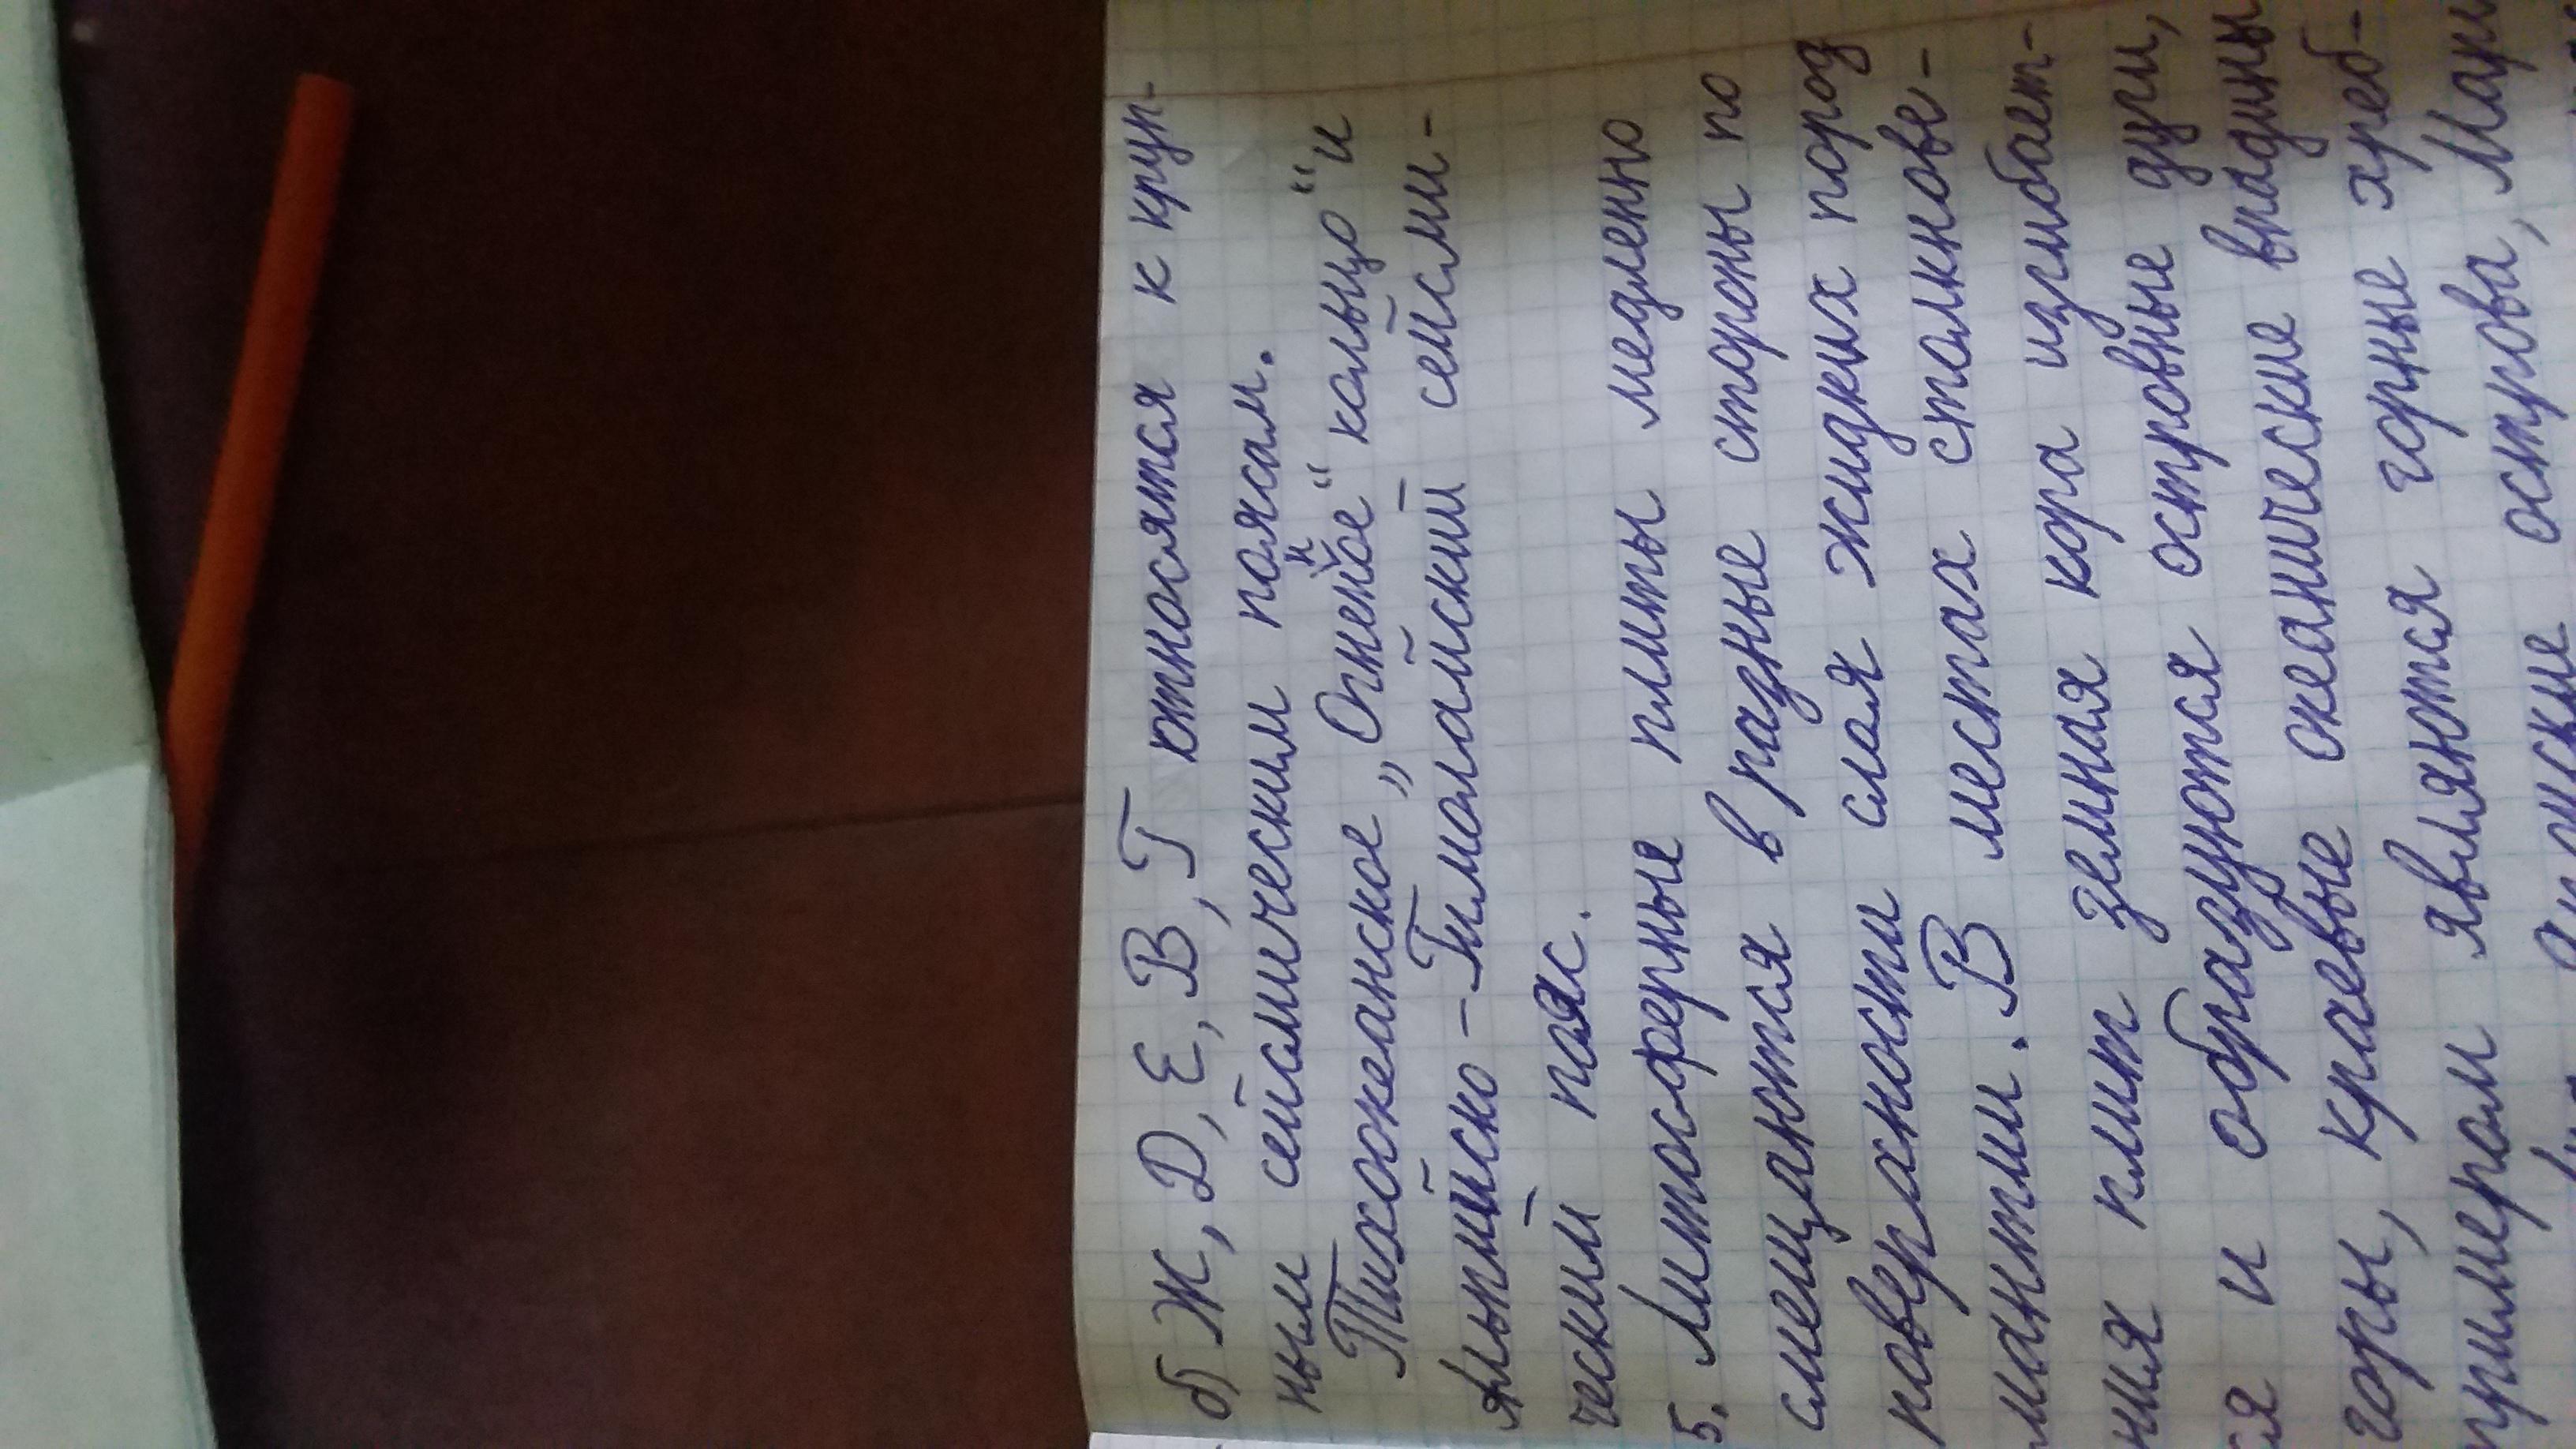 б) Ж, Д, Е, В, Т относятся к круп-
ным сейсмическим поясам.
Тихоокеанское „Огненное" кольцо" и
Альпийско-Гималайский сейсми-
ческий пояс.
5. Литосферные плиты медленно
смещаются в разные стороны по
поверхности слоя жидких пород
мантии. В местах столкнове-
ния плит земная кора изгибает-
ся и образуются островные дуги,
горы, краевые океанические впадины
примером являются горные хреб-
острова, Мари